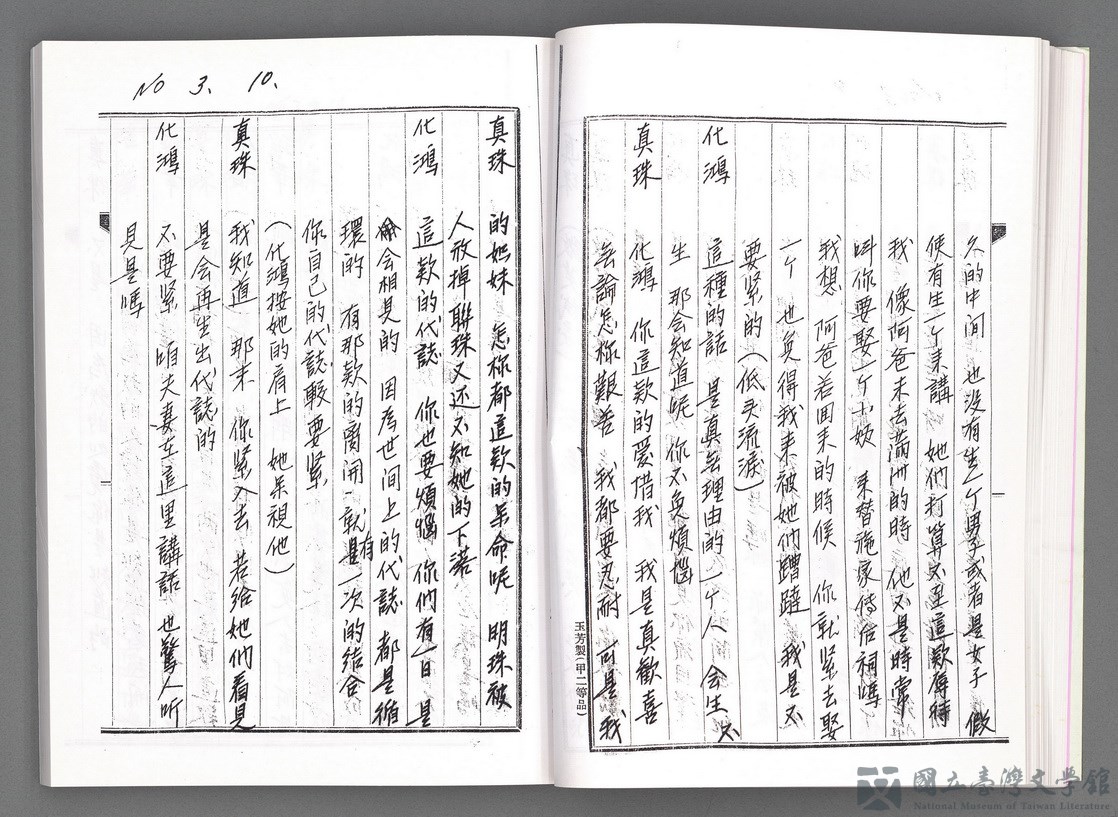 久的中间 也没有生一个男子或者是女子 假
使有生一个来講 她们打算不至這款虐待
我 像阿爸未去滿州的時 他不是時常
叫你要娶一个小妓 来替施家傳后祠嗎
我想 阿爸若回来的時候 你就紧去娶
一个 也免得我来被她们蹧蹋 我是不
要紧的(低头流淚)
化鴻 這種的話 是真無理由的 一个人 会生不
生 那会知道呢 你不免煩惱
真珠 化鴻 你這款的愛惜我 我是真歡喜
無論怎樣艱苦 我都要忍耐 可是 我
玉芳製(甲二等品)
NO 3. 10.
真珠 的姐妹 怎樣都這款的呆命呢 明珠被
人放掉 聯珠又还不知她的下落
化鴻 這款的代誌 你也要煩惱 你們有一日 是
会相見的 因為世间上的代誌 都是循
環的 有那款的離開 就是有一次的结合
你自己的代誌較要紧
(化鴻按她的肩上 她呆視他)
真珠 我知道 那末 你紧入去 若给她们看見
是会再生出代誌的
化鴻 不要紧 咱夫妻在這里講話 也驚人听
見是嗎
國立臺灣文學館
National Museum of Taiwan Literature